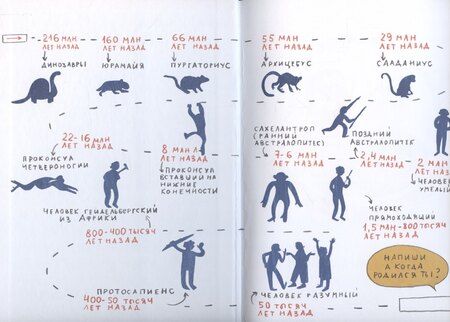 216 МЛН
ЛЕТ НАЗАД
ДИНОЗАВРЫ
160 МЛН
ЛЕТ НАЗАД
ЮРАМАЙЯ
66 МЛН
ЛЕТ НАЗАД
ПУРГАТОРИУС
55 МЛН
ЛЕТ НАЗАД
АРХИЦЕБУС
29 МЛН
ЛЕТ НАЗАД
СААДАНИУС
22-16 МЛН
ЛЕТ НАЗАД
ПРОКОНСУЛ
ЧЕТВЕРОНОГИЙ
8 МЛН Л
ЛЕТ НАЗАД
ПРОКОНСУЛ
ВСТАВШИЙ НА
НИЖНИЕ
КОНЕЧНОСТИ
САХЕЛАНТРОП
(РАННИЙ
АВСТРАЛОПИТЕК)
7-6 МЛН
ЛЕТ НАЗАД
ПОЗДНИЙ
АВСТРАЛОПИТЕК
2,4 МЛН
ЛЕТ НАЗАД
2 МЛН
ЛЕТ НАЗАД
ЧЕЛОВЕК
УМЕЛЫЙ
ЧЕЛОВЕК ГЕЙДЕЛЬБЕРГСКИЙ
ИЗ АФРИКИ
800-400 ТЫСЯЧ
ЛЕТ НАЗАД
ЧЕЛОВЕК
ПРЯМОХОДЯЩИЙ
1,5 МЛН-800 ТЫСЯЧ
ЛЕТ НАЗАД
ПРОТОСАПИЕНС
400-50 ТЫСЯЧ
ЛЕТ НАЗАД
ЧЕЛОВЕК РАЗУМНЫЙ
50 ТЫСЯЧ
ЛЕТ НАЗАД
НАПИШИ
А КОГДА
РОДИЛСЯ ТЫ?